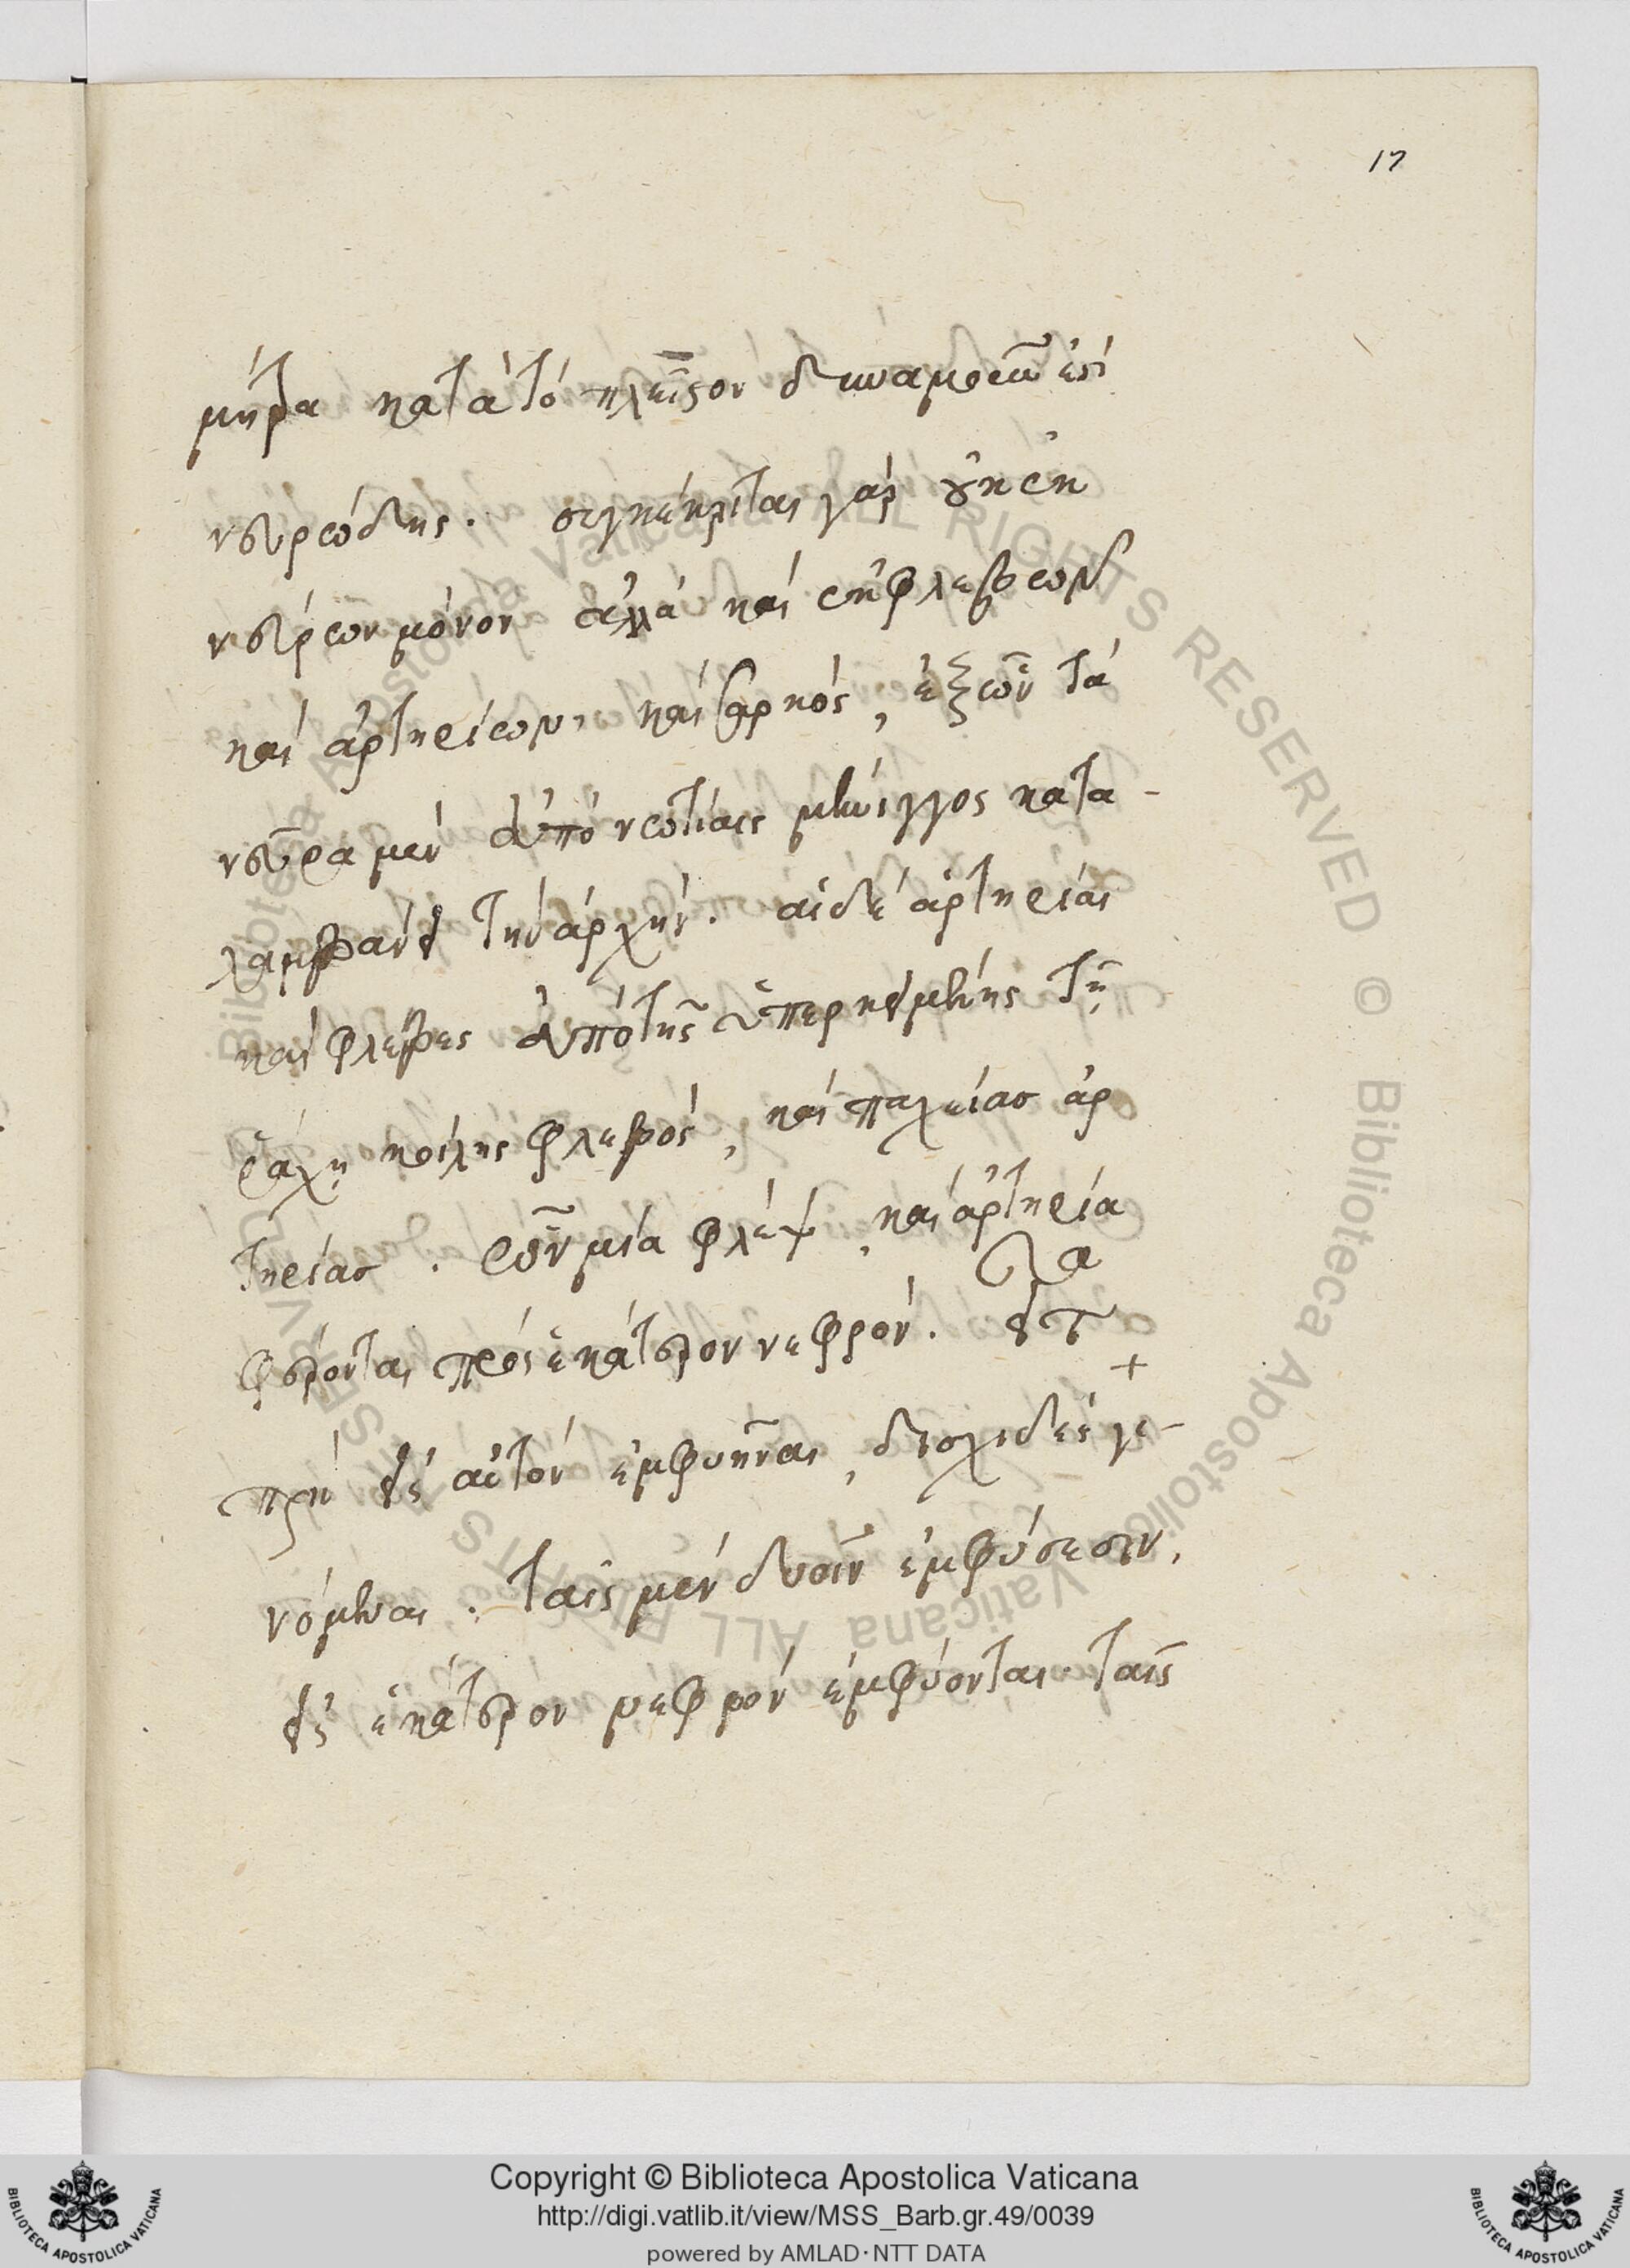 17
μήτρα κατὰ τὸ πλεῖστον δυναμοειν ἐστὶ
νευρώδης. συγκέκριται γὰρ οὐκ ἐκ
νεύρων μόνον ἀλλὰ καὶ ἐκ φλεβῶν
καὶ ἀρτηριῶν, καὶ σαρκός, ἐξ ὧν τὰ
νεῦρα μὲν ἀπὸ νωτίαις μήνιγγος κατα-
λαμβάνει τὴν ἀρχήν. αἱ δὲ ἀρτηρίαι
καὶ φλέβες ἀπὸ τῆς ὑπερκειμένης τῇ
ῥάχῃ κοίλης φλεβός, καὶ παχείασ ἀρ
τηρίασ. ἐσὖν μία φλέψ, καὶ ἀρτηρία
φέρονται πρὸς ἑκάτερον νεφρόν. εἶτα
πρὶν εἰς αὐτὸν ἐμφυῆναι, δισχιδεῖς γε-
νόμεναι. ταῖς μὲν δυσὶν ἐμφύσεσιν,
εἰς ἑκάτερον νεφρὸν ἐμφύονται. ταῖς
Copyright © Biblioteca Apostolica Vaticana
http://digi.vatlib.it/view/MSS_Barb.gr.49/0039
powered by AMLAD·NTT DATA
BIBLIOTECA APOSTOLICA VATICANA
BIBLIOTECA APOSTOLICA VATICANA
Biblioteca Apostolica Vaticana ALL RIGHTS RESERVED © Biblioteca Apostolica Vaticana ALL RIGHTS RESERVED